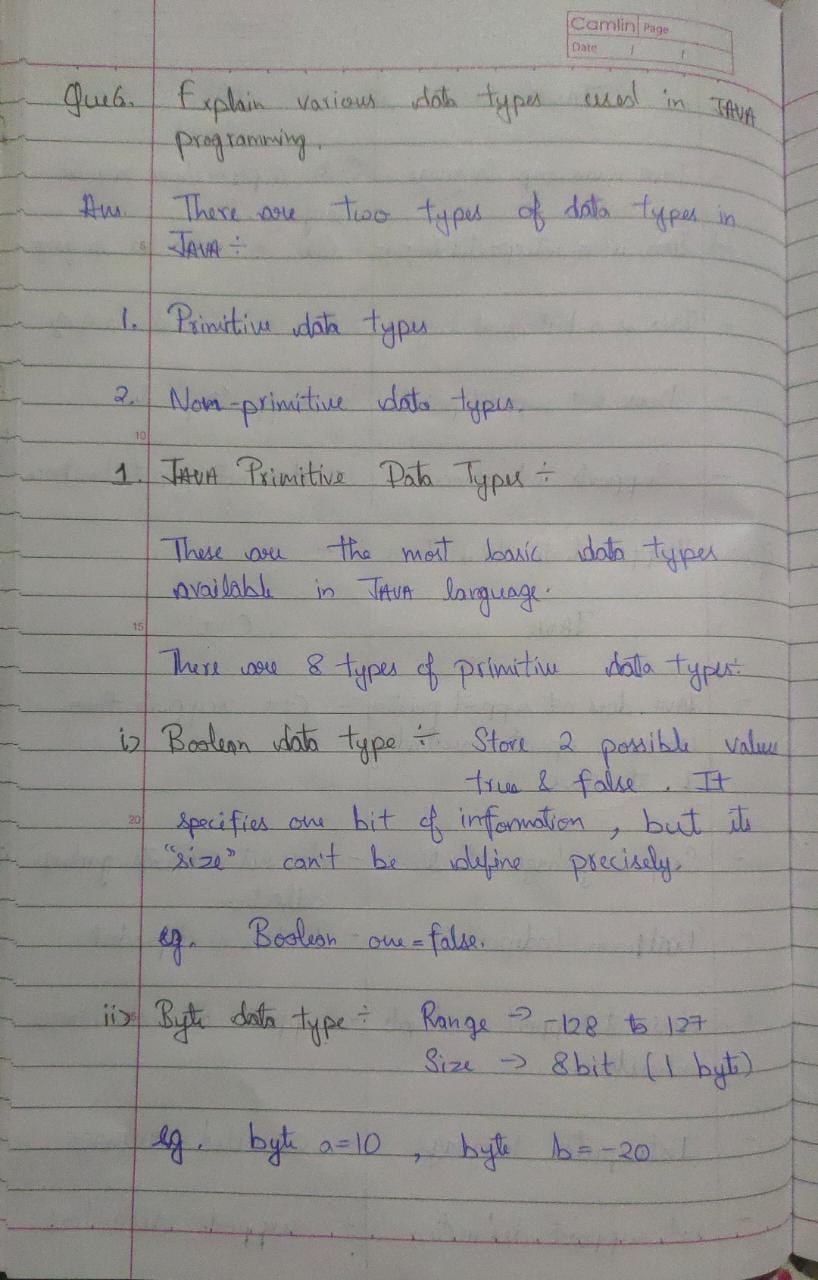 Camlin Page
Date / /
Que6. Explain various data types used in JAVA
programming.
Ans. There are two types of data types in
5
JAVA ÷
1. Primitive data types
2. Non-primitive data types.
10
1. JAVA Primitive Data Types ÷
These are the most basic data types
available in JAVA language.
15
There are 8 types of primitive data types÷
i) Boolean data type ÷ Store 2 possible value
true & false . It
20 specifies one bit of information , but its
"size" can't be define precisely.
eg. Boolean one = false.
ii) Byte data type ÷ Range → -128 to 127
Size → 8bit (1 byte)
eg. byte a=10 , byte b = -20